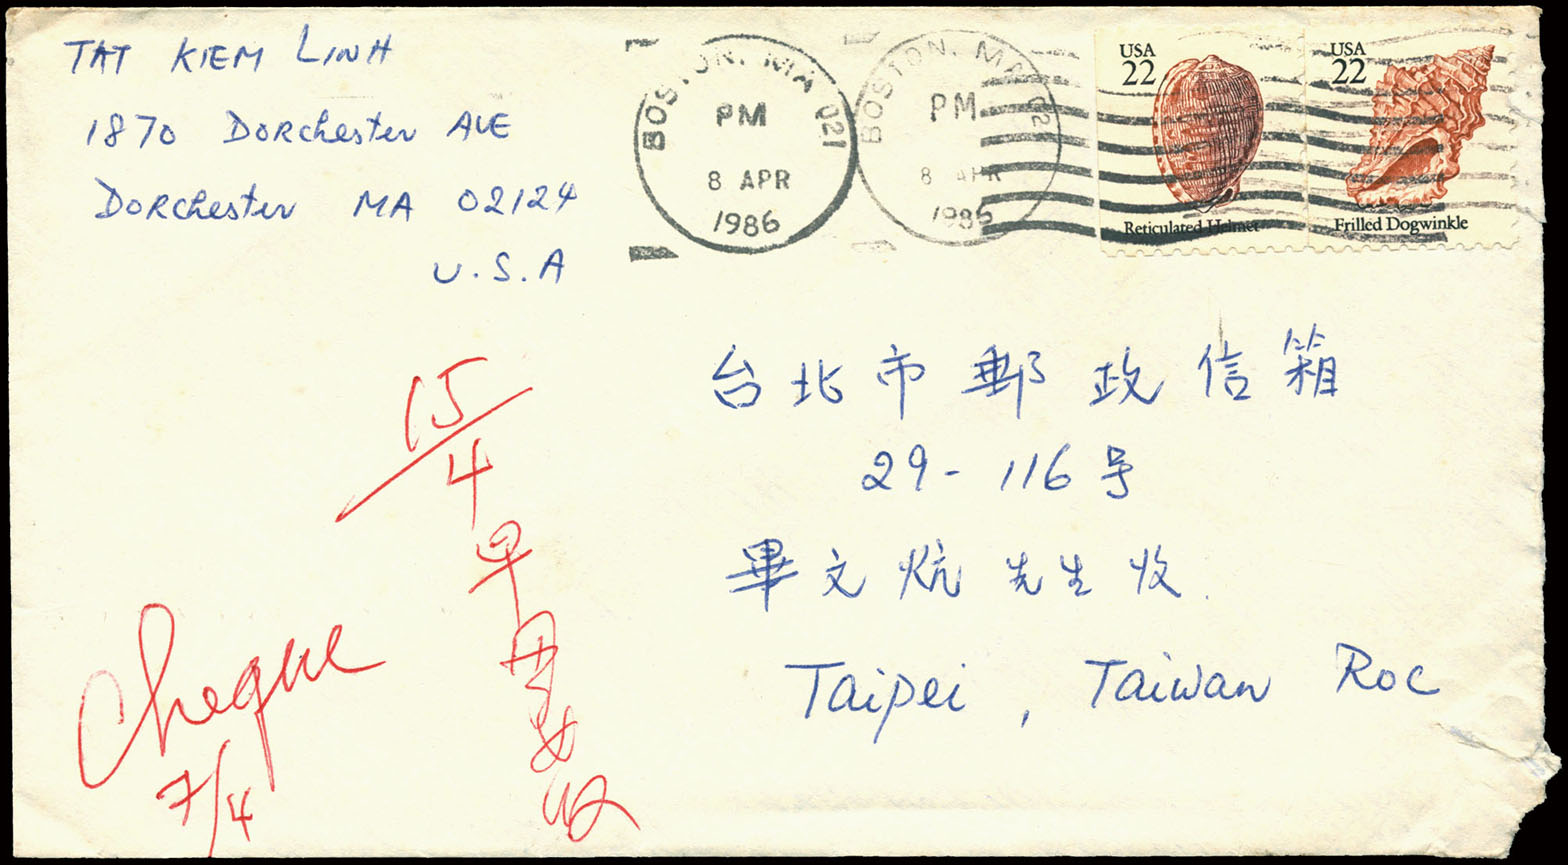 TAT KIEM LINH
1870 DORchester AVE
DORchester MA 02124
U.S.A
BOSTON, MA 021
PM
8 APR
1986
BOSTON, MA 02
PM
8 APR
1986
USA
22
Reticulated Helmet
USA
22
Frilled Dogwinkle
台北市郵政信箱
29-116号
畢文炕先生收
Taipei, Taiwan ROC
15/4
早
收
Cheque
7/4